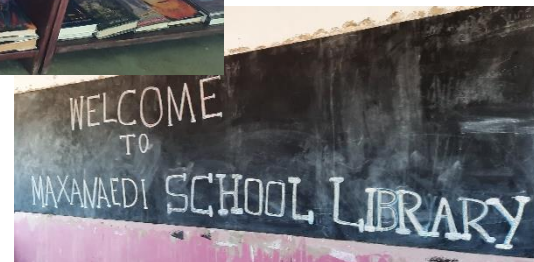 WELCOME
TO
MAXANAEDI SCHOOL LIBRARY